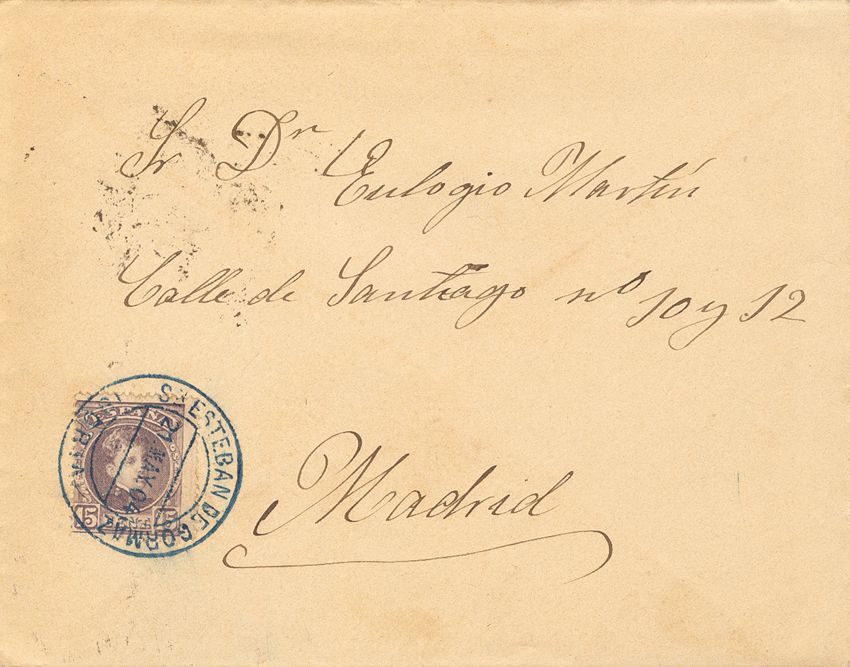 Sr Dr Eulogio Martín
Calle de Santiago nº 10 y 12
Madrid
ESPAÑA
15 15
S. ESTEBAN DE GORMAZ
21 MAY 04